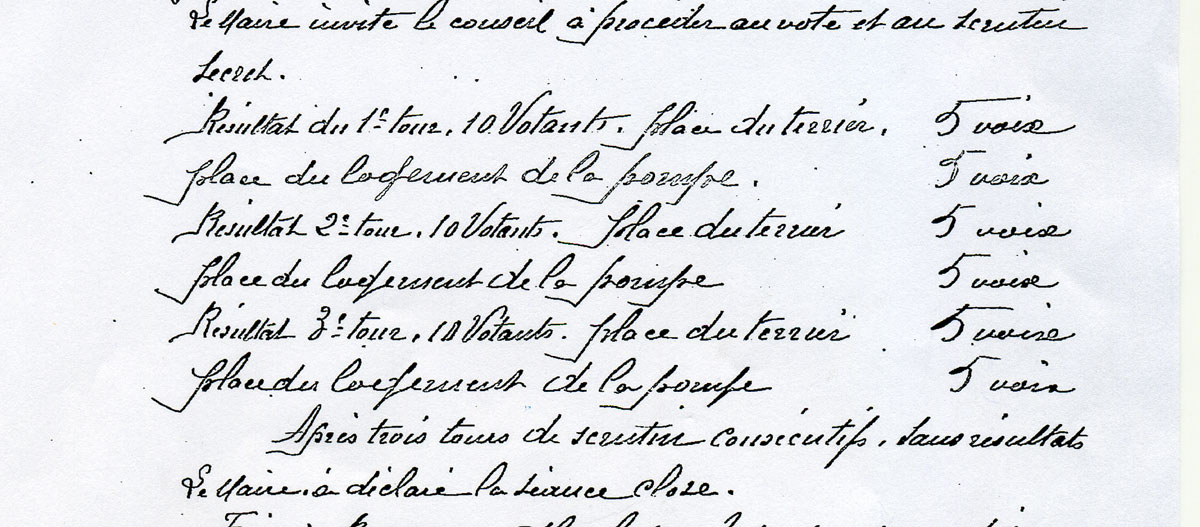 Le Maire invite le conseil à procéder au vote et au scrutin
secret.
Résultat du 1er tour, 10 Votants. place du terrier, 5 voix
place du logement de la pompe. 5 voix
Résultat 2e tour, 10 Votants. place du terrier 5 voix
place du logement de la pompe 5 voix
Résultat 3e tour, 10 Votants. place du terrier 5 voix
place du logement de la pompe 5 voix
Après trois tours de scrutin consécutifs, sans résultats
Le Maire, a déclaré la séance close.